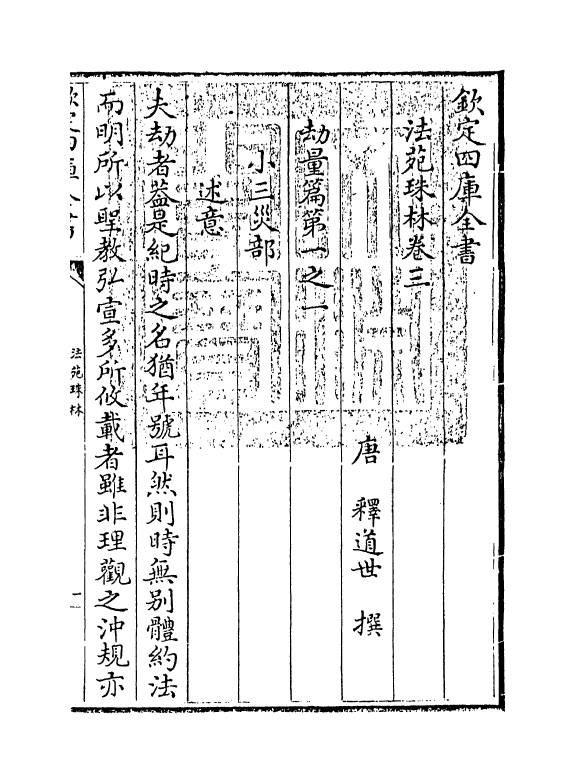 欽定四庫全書
法苑珠林卷三
唐 釋道世 撰
劫量篇第一之一
小三災部
述意
夫劫者蓋是紀時之名猶年號耳然則時無別體約法
而明所以聖教弘宣多所攸載者雖非理觀之沖規亦
欽定四庫全書
法苑珠林
一